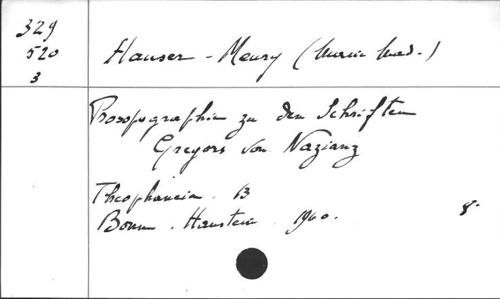 329
520
3
Hauser - Meury (Marie Mad.)
Prosopographie zu den Schriften
Gregors von Nazianz
Theophaneia. 13
Bonn. Hanstein. 1960.
8°